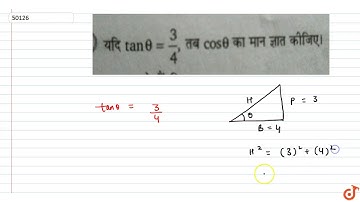 S0126
यदि tanθ = 3/4, तब cosθ का मान ज्ञात कीजिए।
tanθ = 3/4
H
P = 3
θ
B = 4
H² = (3)² + (4)²